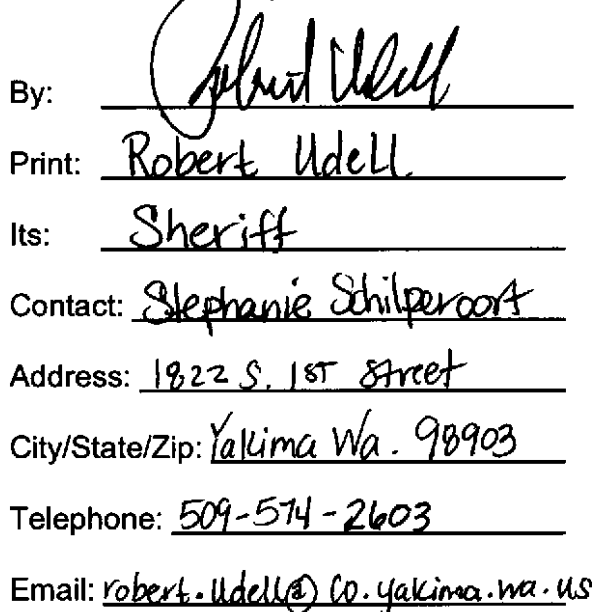 By: Robert Udell
Print: Robert Udell
Its: Sheriff
Contact: Stephanie Schilperoort
Address: 1822 S. 1ST Street
City/State/Zip: Yakima Wa. 98903
Telephone: 509-574-2603
Email: robert.udell@co.yakima.wa.us